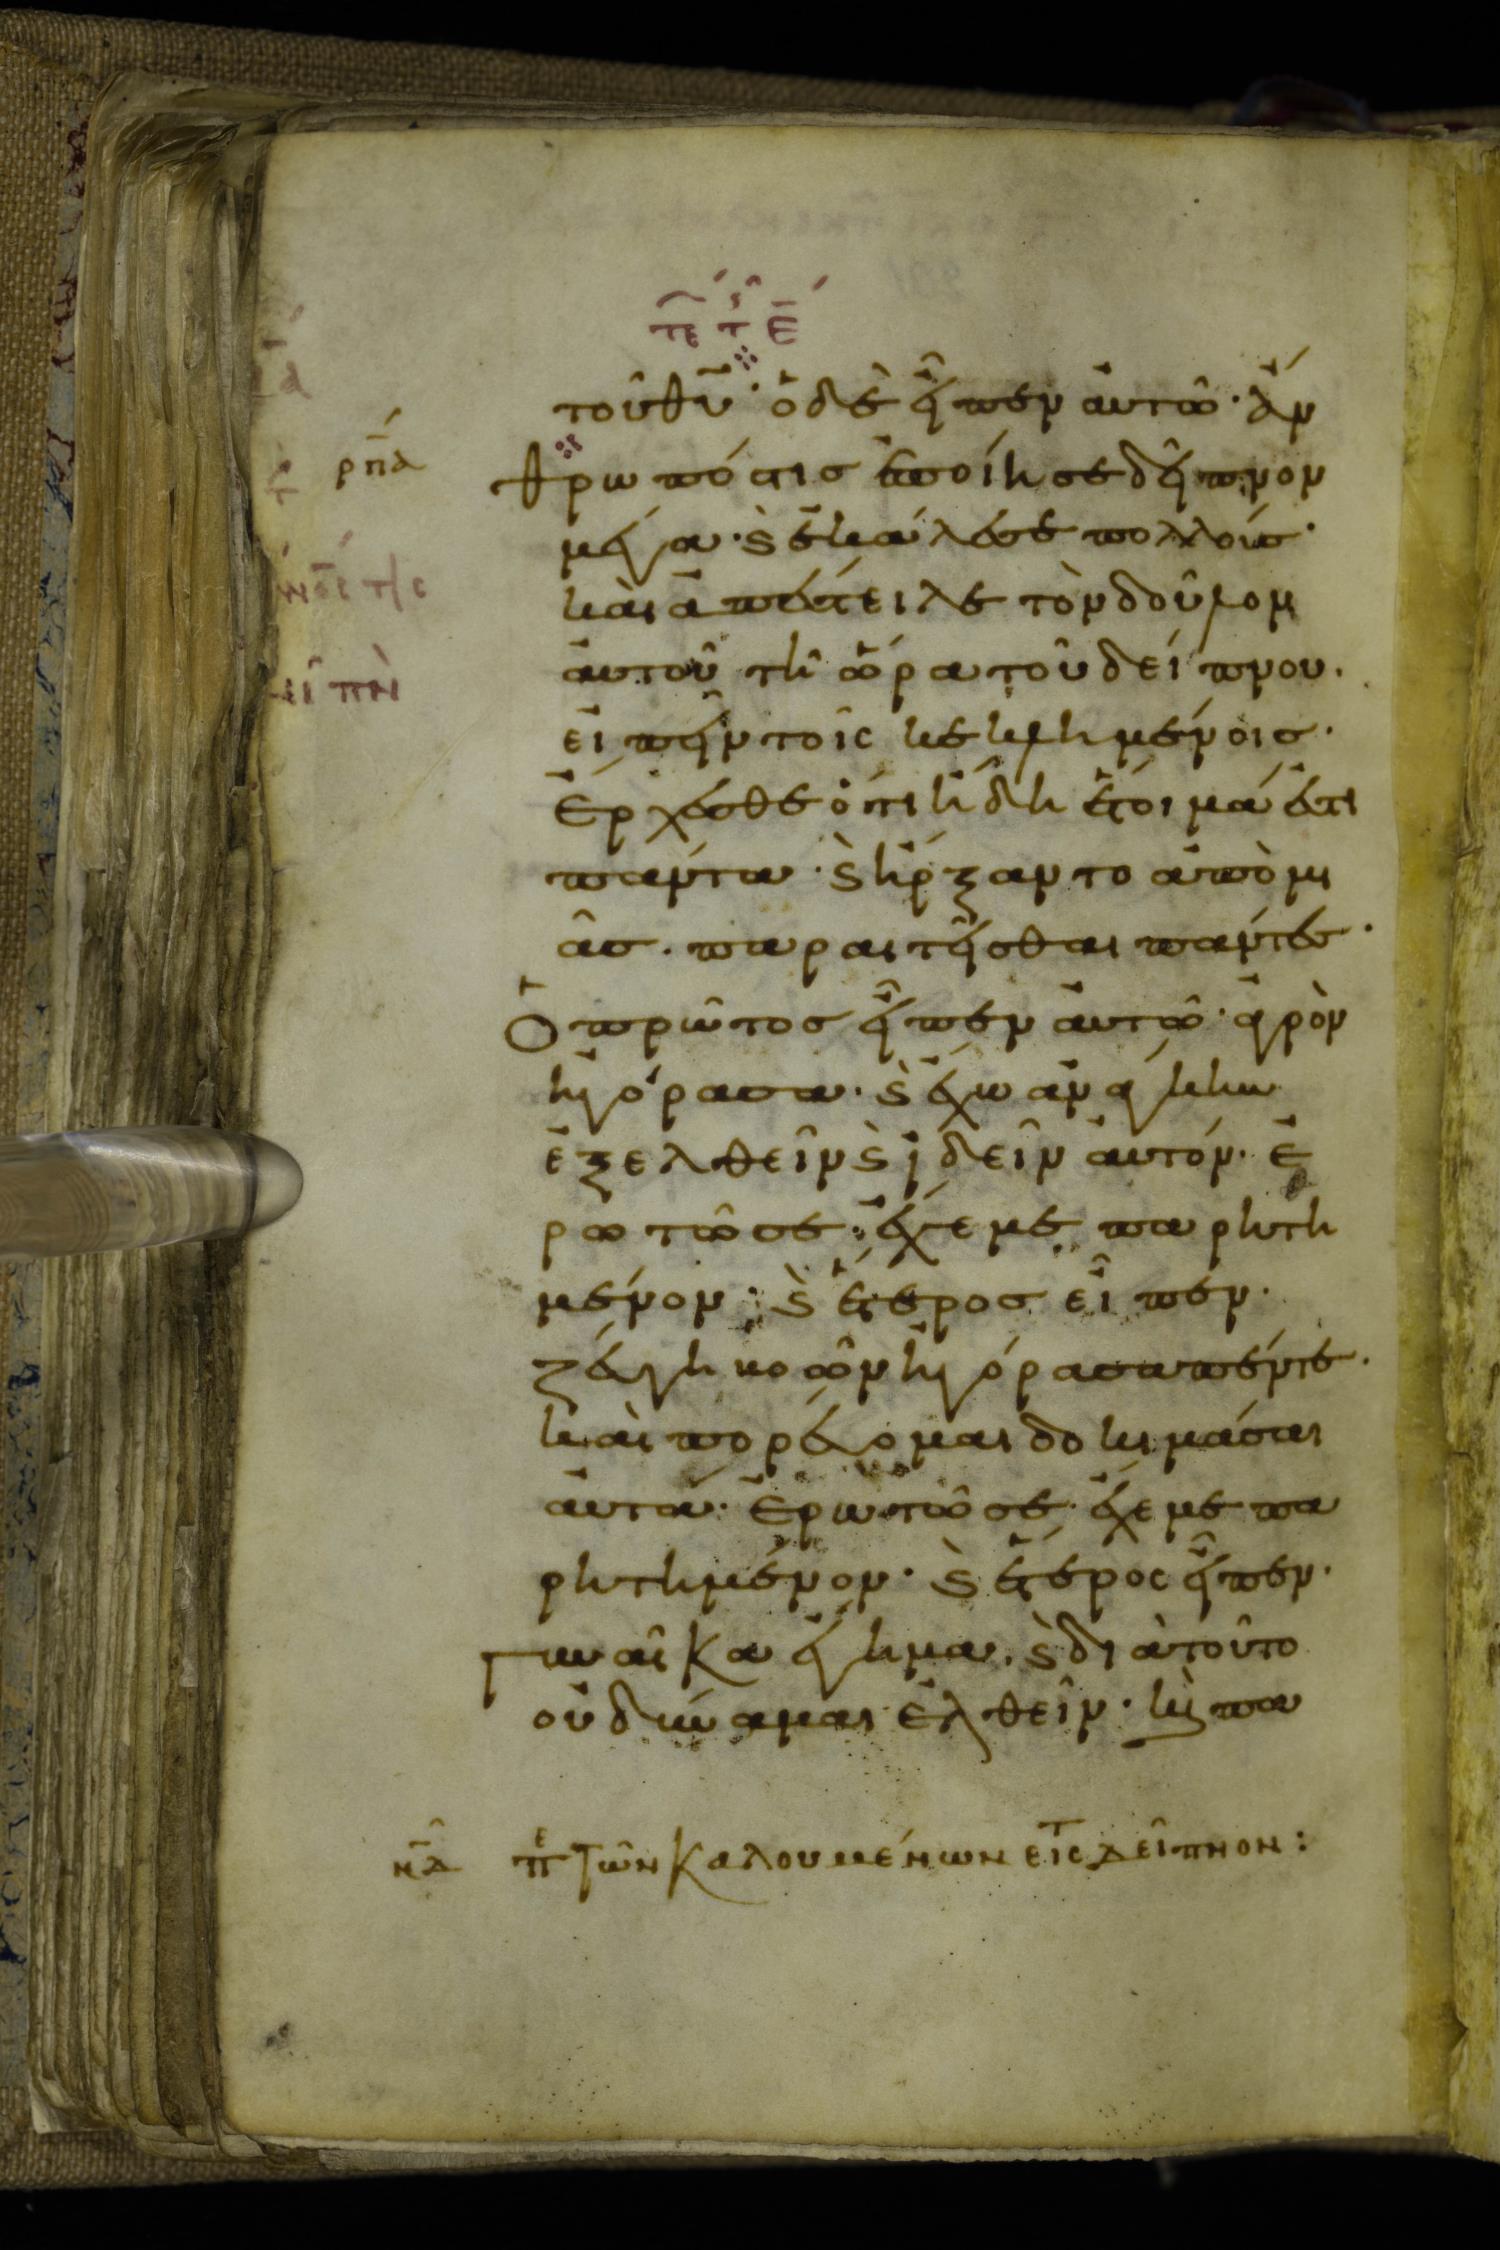 πε τ ε
τοῦ θυ· ὁ δὲ εἶπεν αὐτῶ· ἄν
ρπα
θρωπός τις ἐποίησε δεῖπνον
μέγα· ϗ ἐκάλεσε πολλούς·
καὶ ἀπέστειλε τὸν δοῦλον
αὐτοῦ τῆ ὥρα τοῦ δείπνου·
εἰπεῖν τοῖς κεκλημένοις·
ἔρχεσθε ὅτι ἤδη ἕτοιμά ἐστι
πάντα· ϗ ἤρξαντο ἀπὸ μι
ᾶς· παραιτεῖσθαι πάντες·
Ὁ πρῶτος εἶπεν αὐτῶ· ἀγρὸν
ἠγόρασα· ϗ ἔχω ἀνάγκην
ἐξελθεῖν ϗ ἰδεῖν αὐτόν· ἐ
ρωτῶ σε· ἔχε με παρητη
μένον· ϗ ἕτερος εἶπεν·
ζεύγη βοῶν ἠγόρασα πέντε·
καὶ πορεύομαι δοκιμάσαι
αὐτά· ἐρωτῶ σε· ἔχε με πα
ρητημένον· ϗ ἕτερος εἶπεν·
Γυναῖκα ἔγημα· ϗ διὰ τοῦτο
οὐ δύναμαι ἐλθεῖν· κ πα
νδ πε τῶν καλουμένων εἰς δεῖπνον: